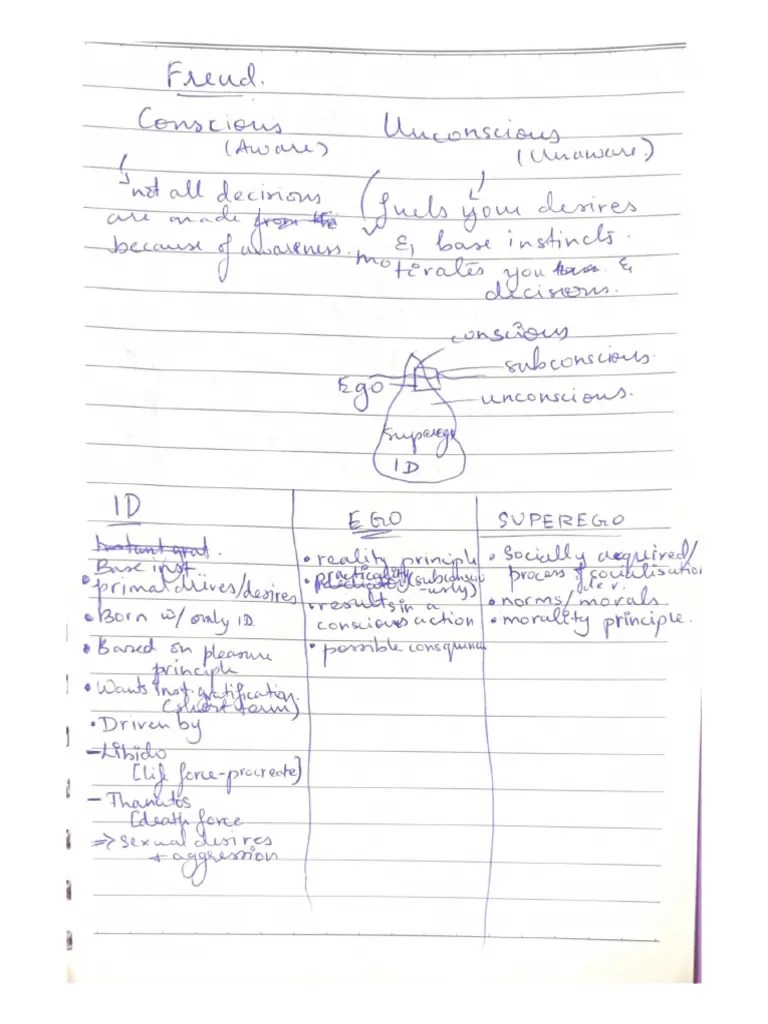 Freud.
Conscious
(Aware)
Unconscious
(Unaware)
not all decisions
are made from the
because of awareness.
fuels your desires
& base instincts.
motivates you &
decisions.
conscious
subconscious
Ego
unconscious.
Superego
ID
ID
Instant grat.
Base inst
• primal drives/desires
• Born w/ only ID
• Based on pleasure
principle
• Wants inst. gratification
(short term)
• Driven by
- Libido
[lif force-procreate]
- Thanatos
[death force
=> sexual desires
+ aggression
EGO
• reality principle
• practicality (subconsci
-usly)
• results in a
conscious action
• possible consequence
SUPEREGO
• Socially acquired/
process of socialisation
• norms/morals
• morality principle.